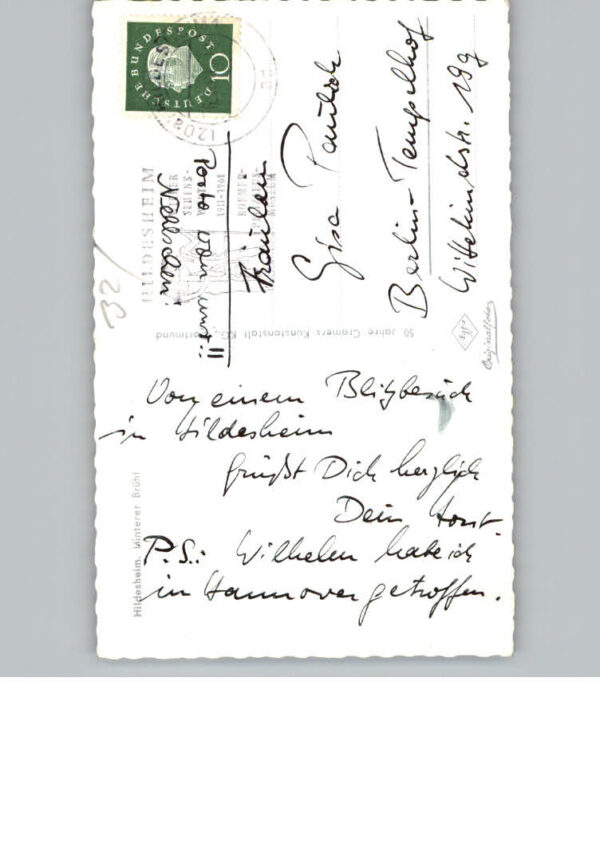 Von einem Blitzbesuch
in Hildesheim
grüßt Dich herzlich
Dein Horst.
P.S.: Wilhelm habe ich
in Hannover getroffen.
Fräulein
Gisa
Berlin-Tempelhof
Wittekindstr.
Porto
DEUTSCHE BUNDESPOST
10
HILDESHEIM
1911-1961
32/
50 Jahre Cramers Kunstanstalt KG., Dortmund
Agfa
Originalfoto
Hildesheim. Hinterer Brühl